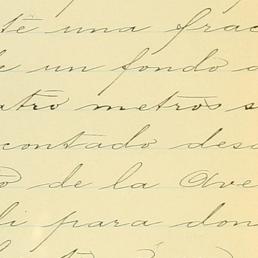 te una frac
e un fondo d
atro metros s
contado desd
o de la Ave
li para don